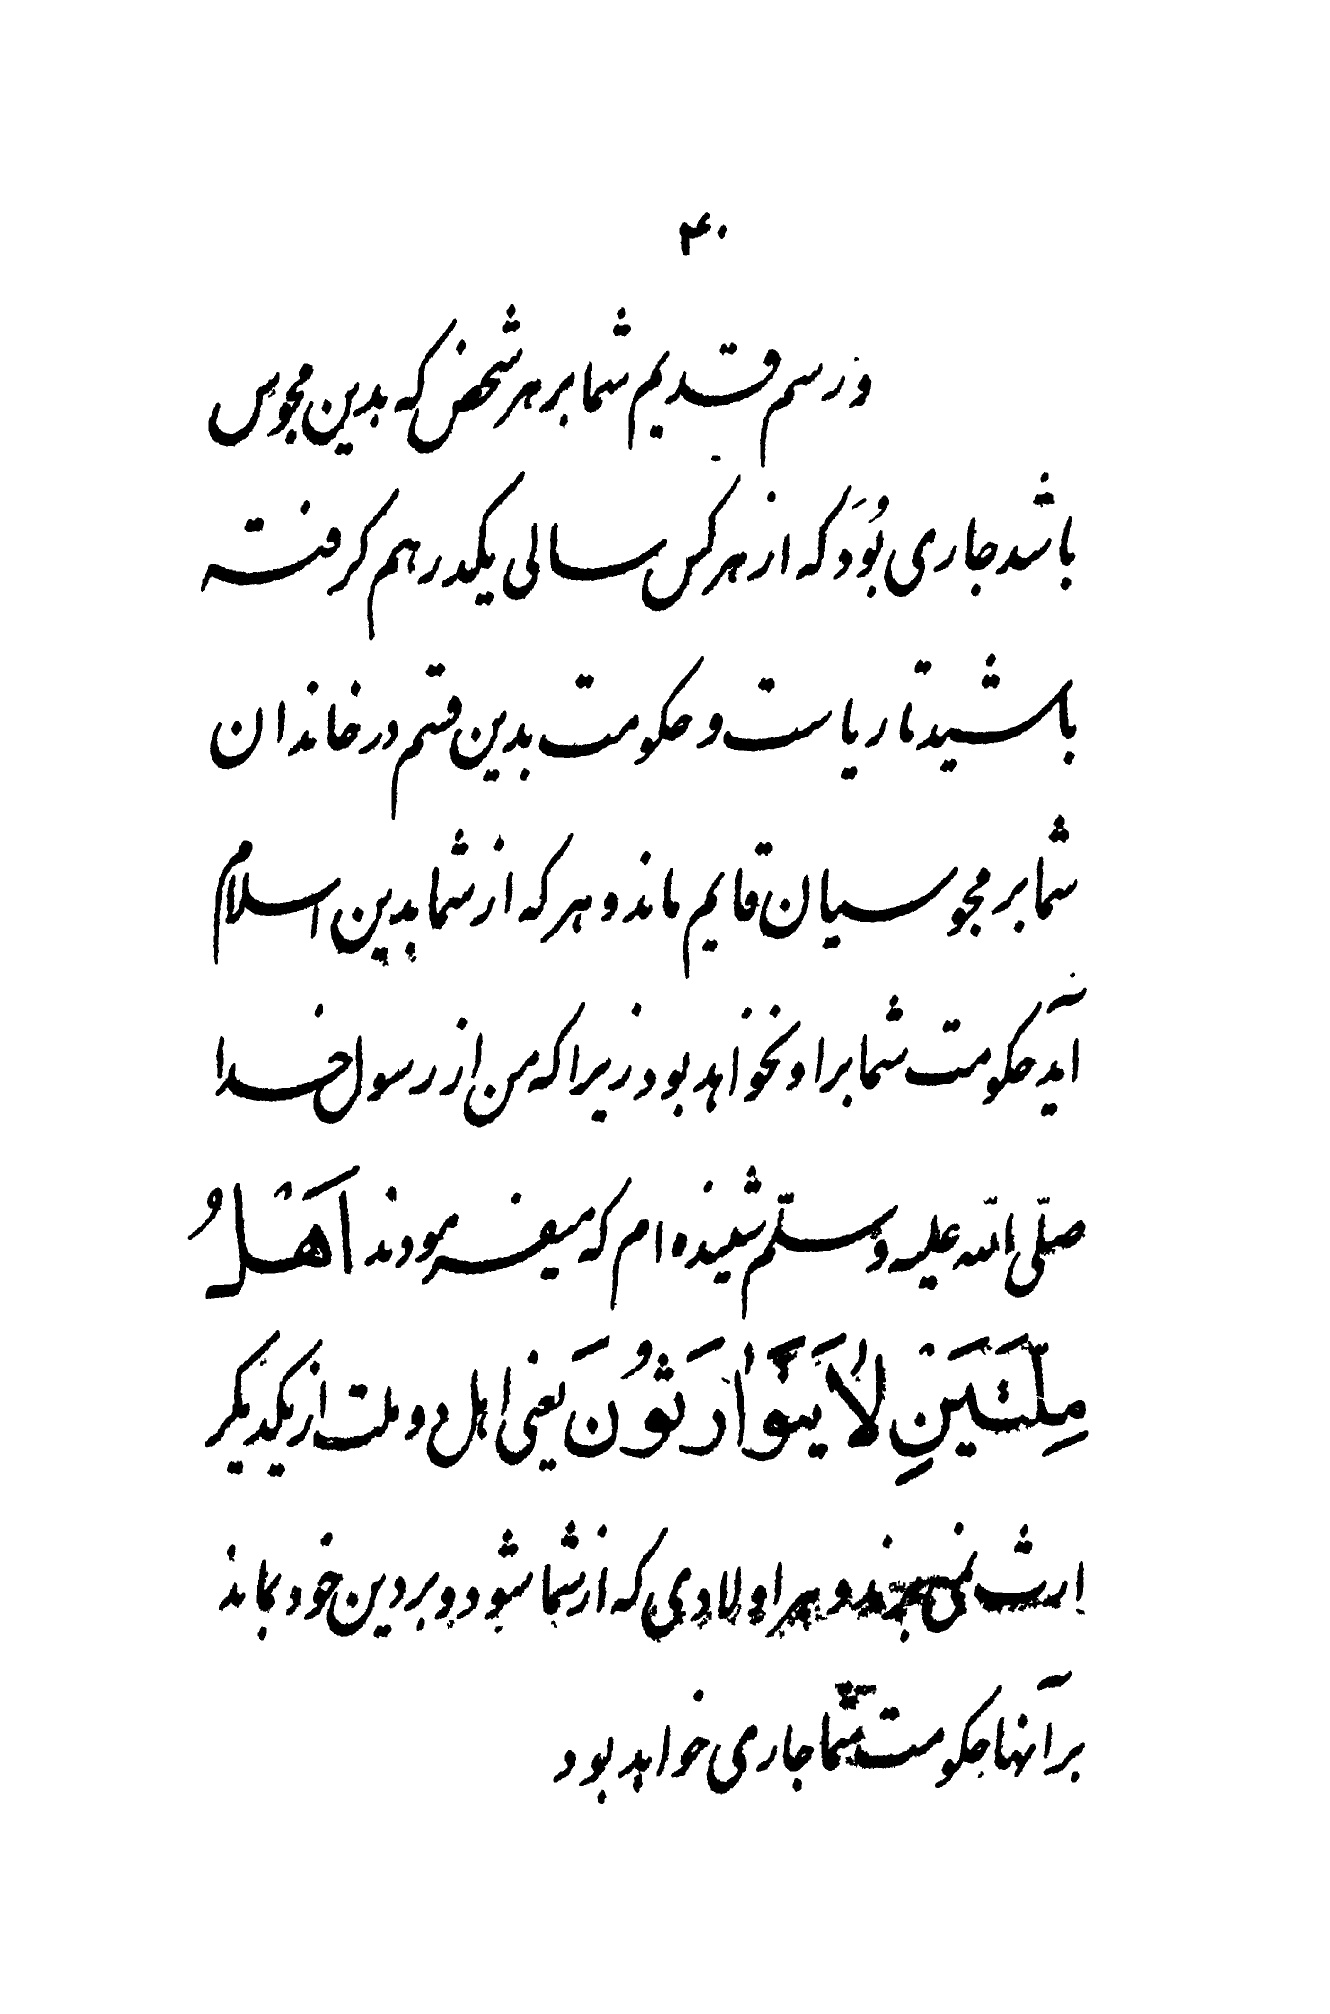 ۴۰
ورسم قدیم شما بر هر شخص که بدین مجوس
باشد جاری بُوَد که از هر کس سالی یکدرهم کرفته
باشید تا ریاست و حکومت بدین قسم در خاندان
شما بر مجوسیان قایم ماند و هر که از شما بدین اسلام
آید حکومت شما بر او نخواهد بود زیرا که من از رسول خدا
صلّی الله علیه وسلّم شنیده ام که میفرمودند اَهْلُ
مِلَّتَیْنِ لَا یَتَوَارَثُونَ یعنی اهل دو ملت از یکدیکر
ارث نمی برند و هر اولادی که از شما شود و بر دین خود بماند
بر آنها حکومت شما جاری خواهد بود